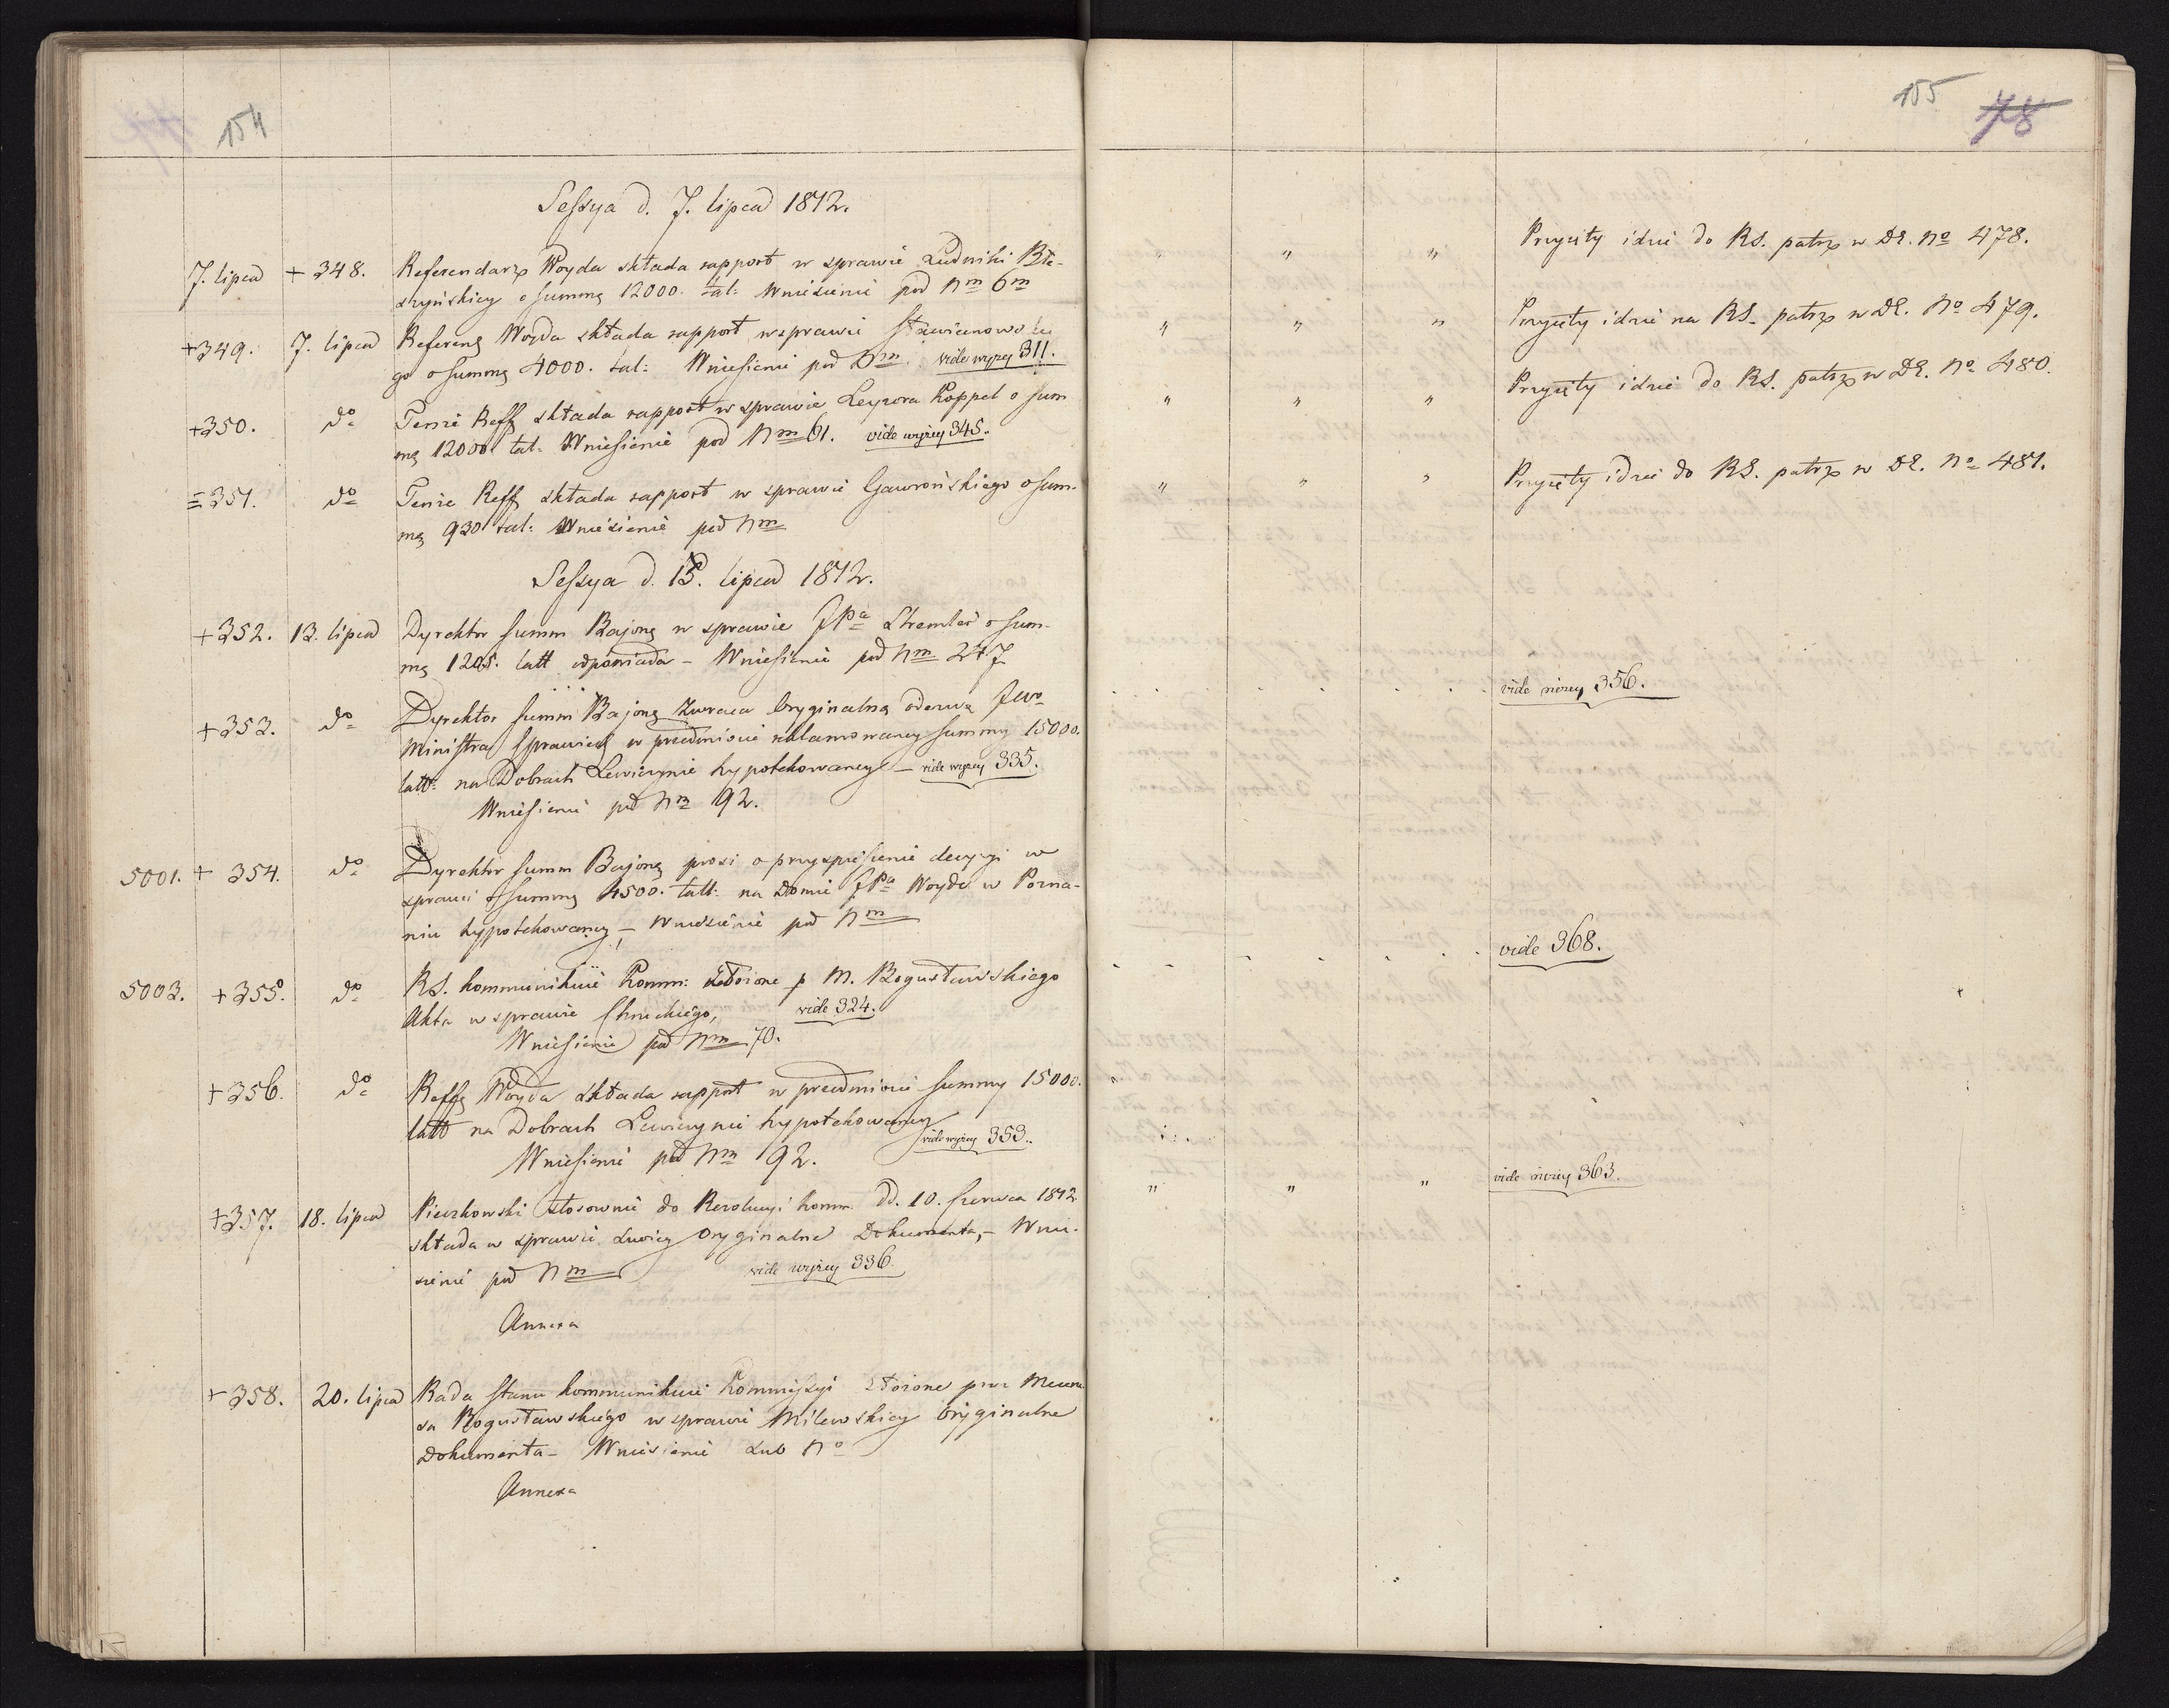 154
Sessya d. 7. lipca 1812.
7. lipca + 348. Referendarz Woyda składa rapport w sprawie Ludwiki Błe-
szyńskiey o summę 12000. tal: Wniesienie pod Nm 6m
+349. 7. lipca Referen Woyda składa rapport w sprawie Stawianowskie
go o summę 4000. tal: Wniesienie pod Nm. vide wyzey 311.
+350. do Tenże Reff składa rapport w sprawie Leyzora Koppel o sum
mę 12000 tal: Wniesienie pod Nm 61. vide wyżey 345.
=351. do Tenże Reff składa rapport w sprawie Gawrońskiego o sum-
mę 930 tal: Wniesienie pod Nm
Sessya d. 13. lipca 1812.
+352. 13. lipca Dyrektor summ Bajoną w sprawie JPa Stremler o sum-
mę 1205. tall odpowiada - Wniesienie pod Nm 247
+353. do Dyrektor summ Bajoną zwraca Oryginalną odezwę JW
Ministra Sprawied w przedmiocie reklamowaney summy 15000.
tall: na Dobrach Lewiczynie hypotekowaney - vide wyzey 335.
Wniesienie pod Nm 192.
5001. + 354. do Dyrektor summ Bajoną prosi o przyspieszenie decyzyi w
sprawie o summę 4500. tall: na Domie JPa Woyde w Pozna-
niu hypotekowaney - Wniesienie pod Nm
5003. +355. do RS. kommunikuie Komm: złożone p M. Bogusławskiego
Akta w sprawie Chruckiego, vide 324.
Wniesienie pod Nm 70.
+356. do Reff Woyda składa rapport w przedmiocie summy 15000.
tall na Dobrach Lewiczynie hypotekowaney vide wyżey 353.
Wniesienie pod Nm 192.
+357. 18. lipca Pieczkowski stosownie do Rezolucyi Komm. D. 10. Czerwca 1812
składa w sprawie swoiey Oryginalne Dokumenta, - Wnie-
sienie pod Nm vide wyżey 336.
Annexa
+358. 20. lipca Rada Stanu kommunikuie Kommissyi złożone przez Mecena
sa Bogusławskiego w sprawie Milewskiey Oryginalne
Dokumenta - Wniesienie sub No
Annexa
155 78
" " " Przyięty idzie do RS. patrz w DE. No 478.
" " " Przyięty idzie na RS. patrz w DE. No 479.
" " " Przyięty idzie do RS. patrz w DE. No 480.
" " " Przyięty idzie do RS. patrz w DE. No 481.
vide niżey 356.
vide 368.
" " " vide niżey 363.